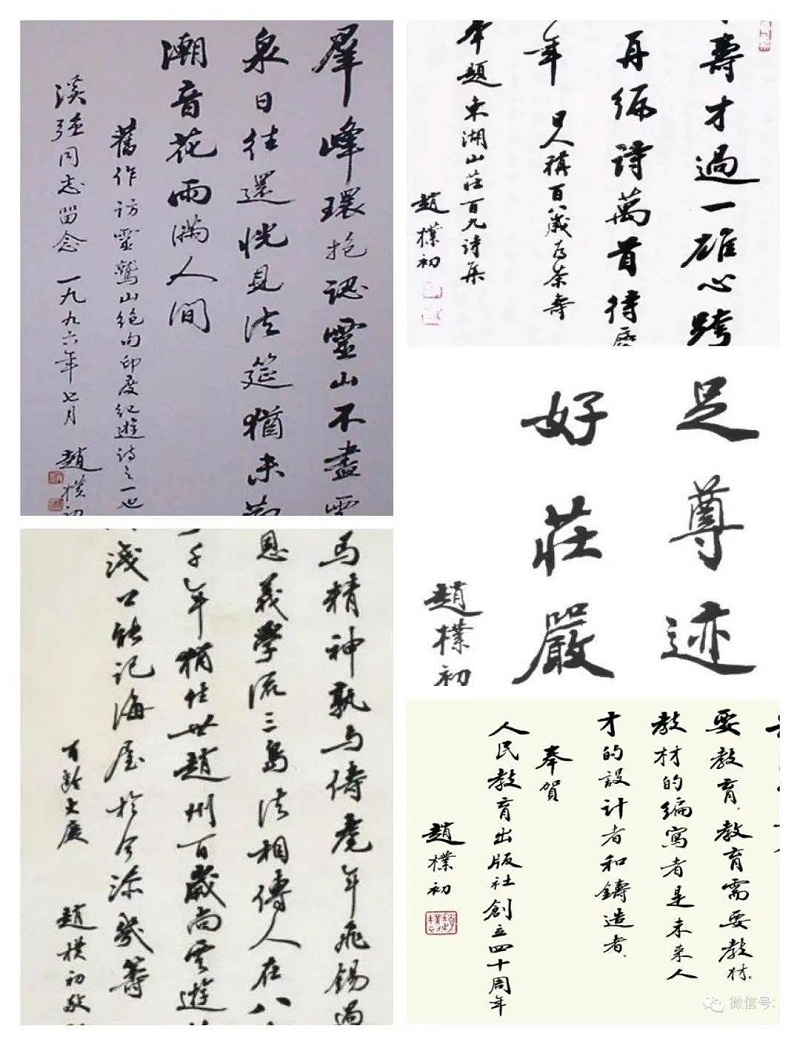 羣峰環抱認靈山不盡
泉日往還恍見法筵猶未
潮音花雨滿人间
舊作訪靈鷲山绝句印度纪遊詩之一也
同志留念 一九九六年七月 趙樸初
壽才過一雄心跨
再编詩萬首待
年 日人稱百八歲为茶壽
奉題東湖山莊百九詩集
趙樸初
足尊迹
好莊嚴
趙樸初
馬精神孰与儔耄年飛锡過
恩義學流三島法相傳人在八
千年猶住世趙州百歲尚雲遊
淺只能记海屋於今添幾籌
百龄大慶
趙樸初敬
要教育,教育需要教材.
教材的编寫者是未来人
才的設计者和鑄造者.
奉賀
人民教育出版社創立四十周年
趙樸初
微信号: